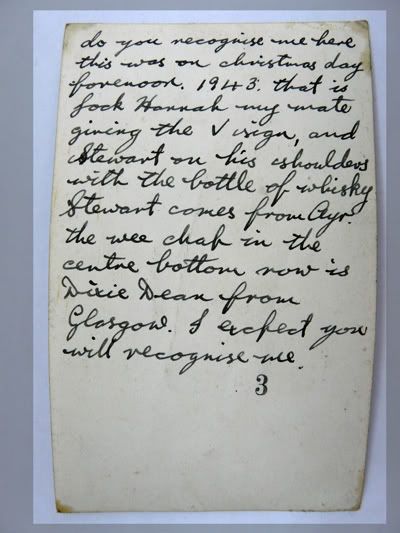 do you recognise me here
this was on christmas day
forenoon. 1943. that is
Jock Hannah my mate
giving the V sign, and
Stewart on his shoulders
with the bottle of whisky
Stewart comes from Ayr.
the wee chap in the
centre bottom row is
Dixie Dean from
Glasgow. I expect you
will recognise me.
3